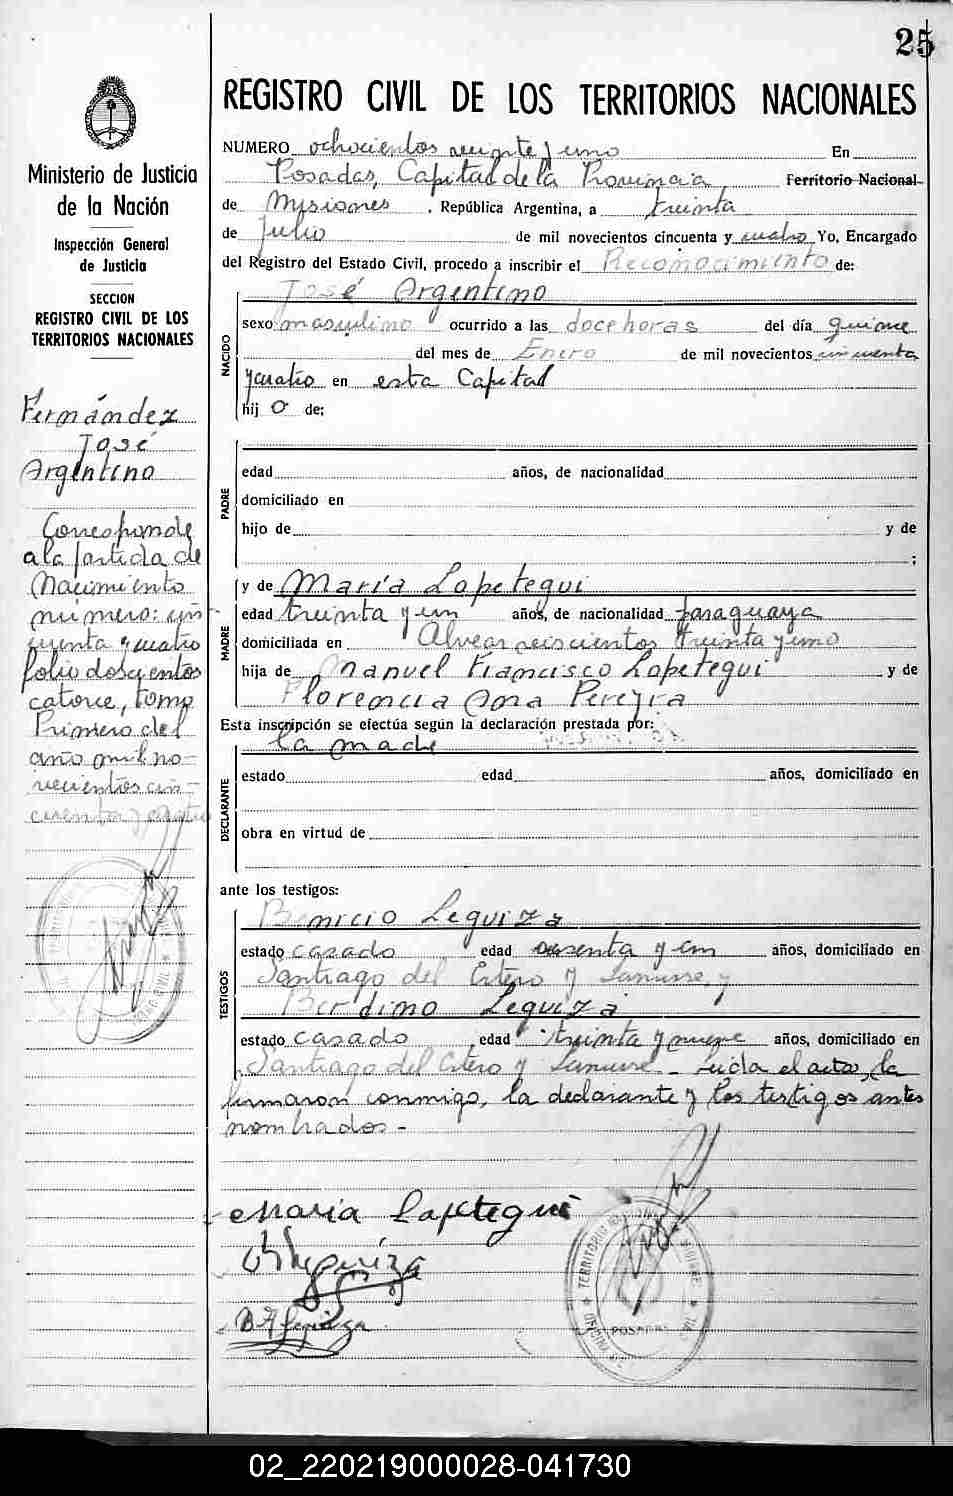 25
REGISTRO CIVIL DE LOS TERRITORIOS NACIONALES
Ministerio de Justicia
de la Nación
Inspección General
de Justicia
SECCION
REGISTRO CIVIL DE LOS
TERRITORIOS NACIONALES
Fernández
José
Argentino
Corresponde
a la partida de
Nacimiento
número: cin
cuenta y cuatro
folio doscientos
catorce, tomo
Primero del
año mil no-
vecientos cin-
cuenta y cuatro
NUMERO ochocientos veinte y uno En
Posadas, Capital de la Provincia Territorio Nacional
de Misiones, República Argentina, a treinta
de Julio de mil novecientos cincuenta y cuatro Yo, Encargado
del Registro del Estado Civil, procedo a inscribir el Reconocimiento de:
NACIDO
José Argentino
sexo masculino ocurrido a las doce horas del día quince
del mes de Enero de mil novecientos cincuenta
y cuatro en esta Capital
hij o de:
PADRE
edad años, de nacionalidad
domiciliado en
hijo de y de
;
MADRE
y de María Lopetegui
edad treinta y un años, de nacionalidad paraguaya
domiciliada en Alvear seiscientos treinta y uno
hija de Manuel Francisco Lopetegui y de
Florencia Ana Pereyra
Esta inscripción se efectúa según la declaración prestada por:
DECLARANTE
La made
estado edad años, domiciliado en
obra en virtud de
ante los testigos:
TESTIGOS
Benicio Leguiza
estado casado edad y un años, domiciliado en
Santiago del Estero y Lanusse, y
Leguiza
estado casado edad treinta y nueve años, domiciliado en
Santiago del Estero y Lanusse - Leida el acta, la
firmaron conmigo, la declarante y los testigos antes
nombrados -
Maria Lopetegui
POSADAS
02_220219000028-041730